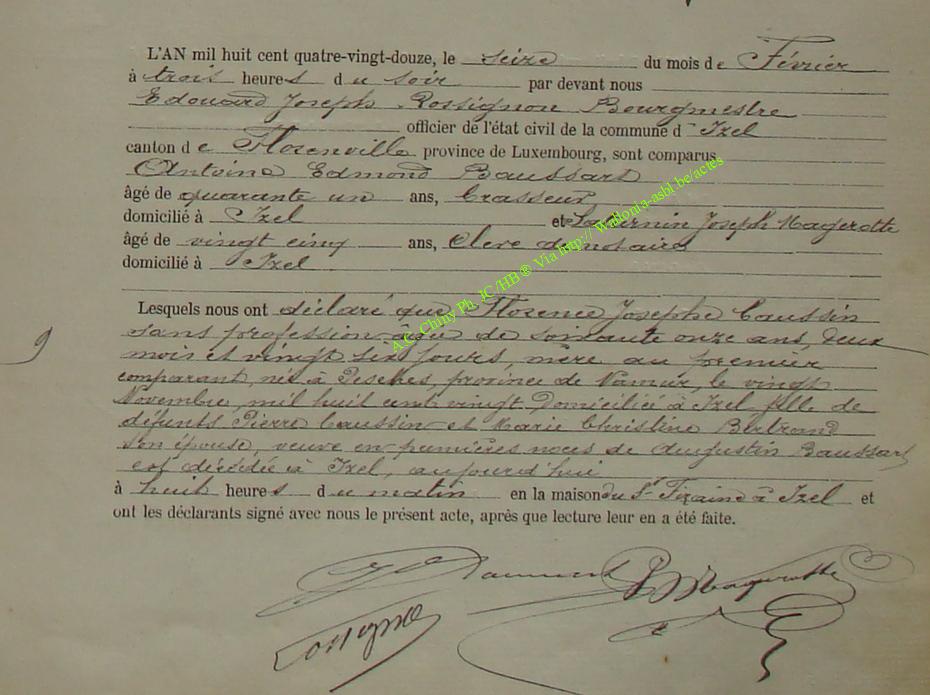 L'AN mil huit cent quatre-vingt-douze, le seize du mois de Février
à trois heures du soir par devant nous
Edouard Joseph Rossignon Bourgmestre
officier de l'état civil de la commune d'Izel
canton de Florenville province de Luxembourg, sont comparus
Antoine Edmond Baussart
âgé de quarante un ans, brasseur
domicilié à Izel et Saturnin Joseph Magerotte
âgé de vingt cinq ans, Clerc de notaire
domicilié à Izel
Lesquels nous ont déclaré que Florence Josephe Caussin
sans profession âgée de soixante onze ans, deux
mois et vingt six jours, mère au premier
comparant, née à Pesches, province de Namur, le vingt
Novembre, mil huit cent vingt Domiciliée à Izel fille de
défunts Pierre Caussin et Marie Christine Bertrand
son épouse, veuve en premières noces de Augustin Baussart
est décédée à Izel, aujourd'hui
à huit heures du matin en la maison du Sr à Izel et
ont les déclarants signé avec nous le présent acte, après que lecture leur en a été faite.
9
A.C. Chiny Ph. JC/HB ® Via http://Wallonia-asbl.be/actes
Magerotte